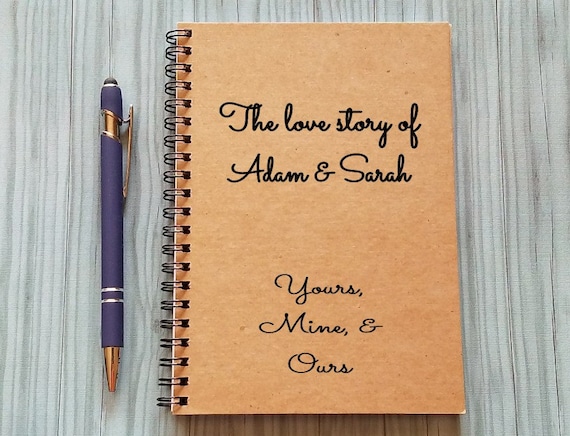 The love story of
Adam & Sarah
Yours,
Mine, &
Ours